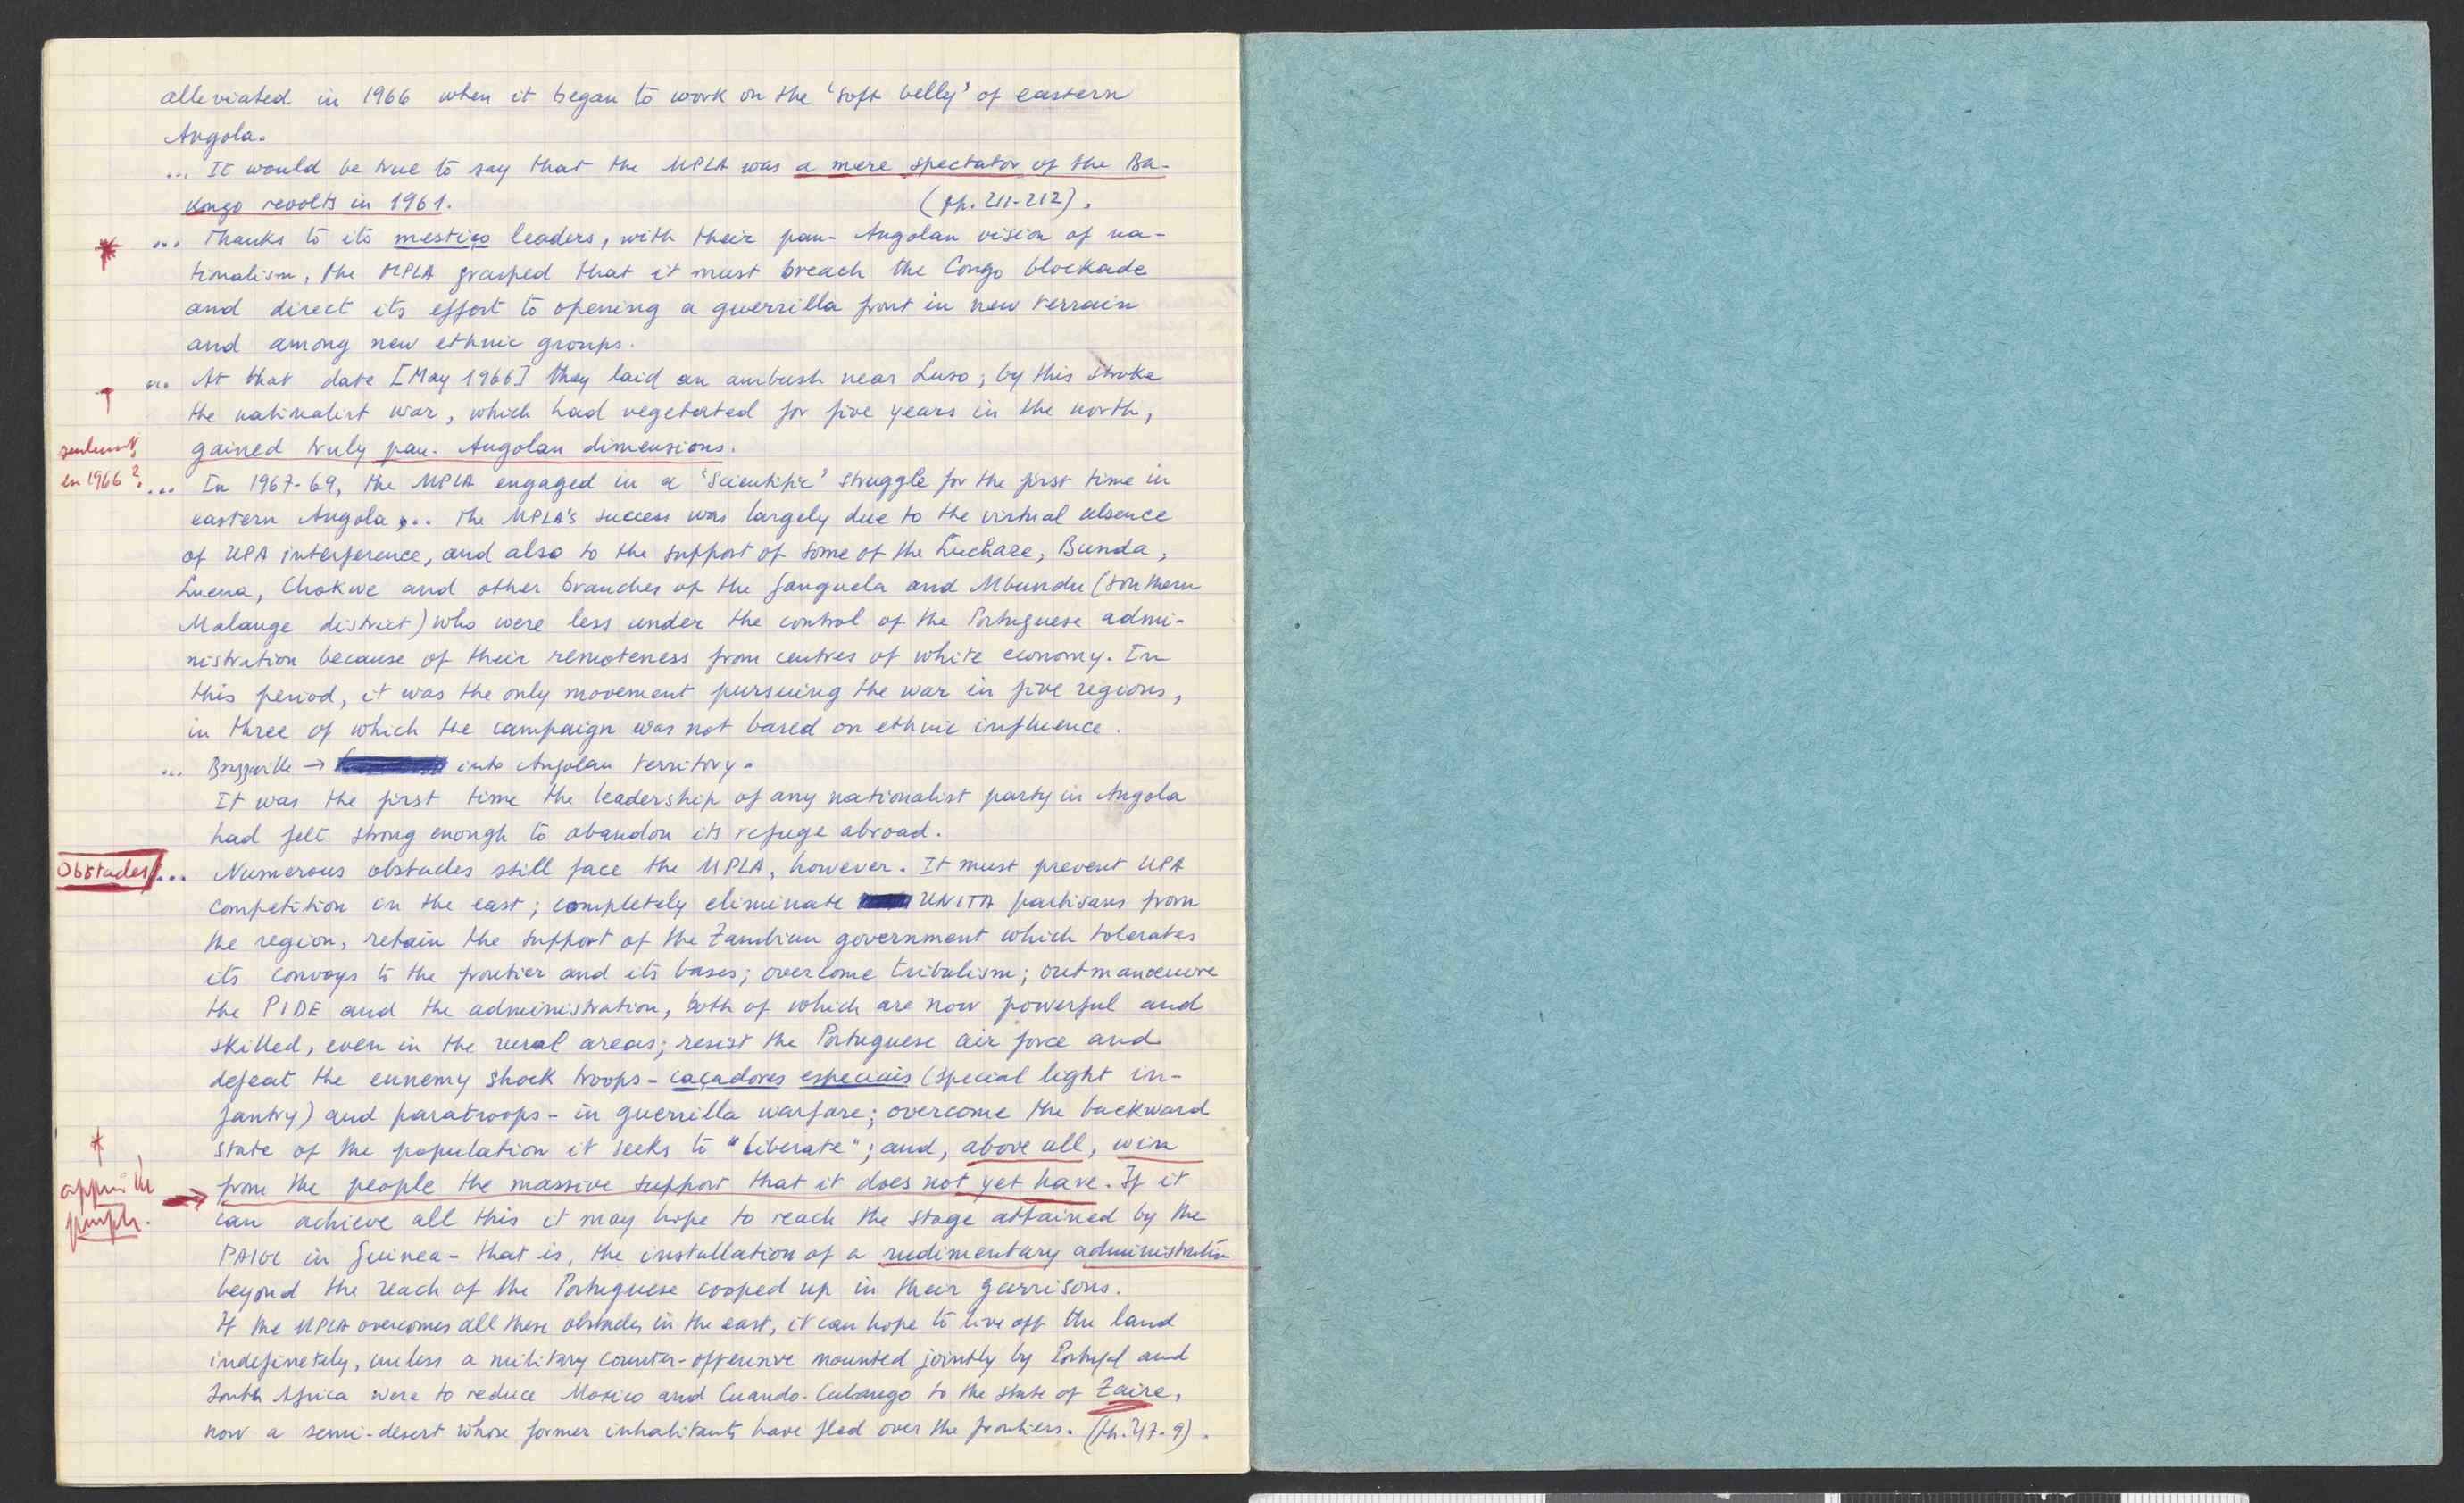 alleviated in 1966 when it began to work on the 'soft belly' of eastern
Angola.
... It would be true to say that the MPLA was a mere spectator of the Ba-
kongo revolts in 1961. (pp. 211-212).
* ... Thanks to its mestiço leaders, with their pan-Angolan vision of na-
tionalism, the MPLA grasped that it must breach the Congo blockade
and direct its effort to opening a guerrilla front in new terrain
and among new ethnic groups.
... At that date [May 1966] they laid an ambush near Luso; by this stroke
the nationalist war, which had vegetated for five years in the north,
gained truly pan-Angolan dimensions.
seulement
en 1966?
... In 1967-69, the MPLA engaged in a 'scientific' struggle for the first time in
eastern Angola ... the MPLA's success was largely due to the virtual absence
of UPA interference, and also to the support of some of the Luchaze, Bunda,
Luena, Chokwe and other branches of the Ganguela and Mbundu (southern
Malange district) who were less under the control of the Portuguese admi-
nistration because of their remoteness from centres of white economy. In
this period, it was the only movement pursuing the war in five regions,
in three of which the campaign was not based on ethnic influence.
... Brazzaville → into Angolan territory.
It was the first time the leadership of any nationalist party in Angola
had felt strong enough to abandon its refuge abroad.
Obstacles ... Numerous obstacles still face the MPLA, however. It must prevent UPA
competition in the east; completely eliminate UNITA partisans from
the region, retain the support of the Zambian government which tolerates
its convoys to the frontier and its bases; overcome tribalism; outmanoeuvre
the PIDE and the administration, both of which are now powerful and
skilled, even in the rural areas; resist the Portuguese air force and
defeat the ennemy shock troops - caçadores especiais (special light in-
fantry) and paratroops - in guerrilla warfare; overcome the backward
state of the population it seeks to "liberate"; and, above all, win
* from the people the massive support that it does not yet have. If it
can achieve all this it may hope to reach the stage attained by the
PAIGC in Guinea - that is, the installation of a rudimentary administration
beyond the reach of the Portuguese cooped up in their garrisons.
If the MPLA overcomes all these obstacles in the east, it can hope to live off the land
indefinetely, unless a military counter-offensive mounted jointly by Portugal and
South Africa were to reduce Moxico and Cuando-Cubango to the state of Zaire,
now a semi-desert whose former inhabitants have fled over the frontiers. (pp. 217-9).